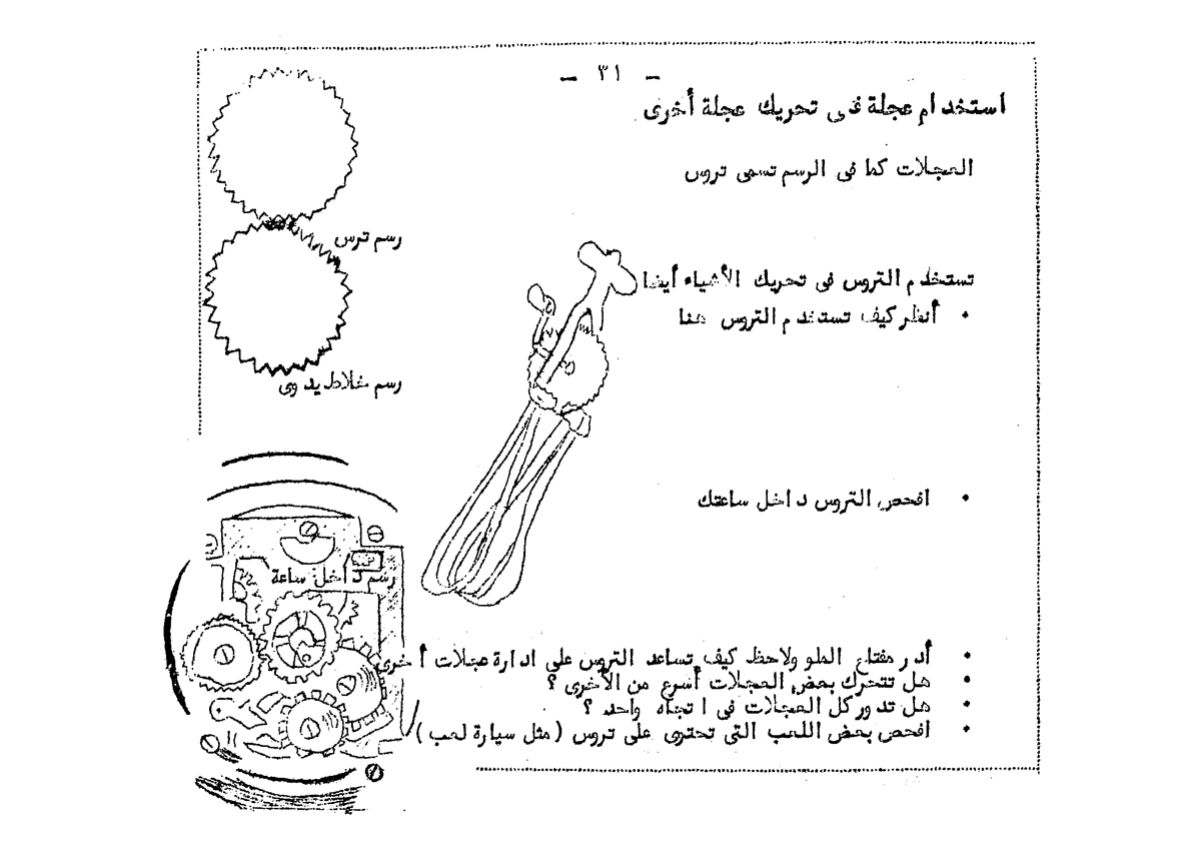 - ٣١ -
استخدام عجلة فى تحريك عجلة أخرى
العجلات كما فى الرسم تسمى تروس
رسم ترس
تستخدم التروس فى تحريك الأشياء أيضا
• أنظر كيف تستخدم التروس هنا
رسم خلاط يدوى
• افحص التروس داخل ساعتك
رسم داخل ساعة
• أدر مفتاح الملو ولاحظ كيف تساعد التروس على ادارة عجلات أخرى
• هل تتحرك بعض العجلات أسرع من الأخرى ؟
• هل تدور كل العجلات فى اتجاه واحد ؟
• افحص بعض اللعب التى تحتوى على تروس (مثل سيارة لعب)